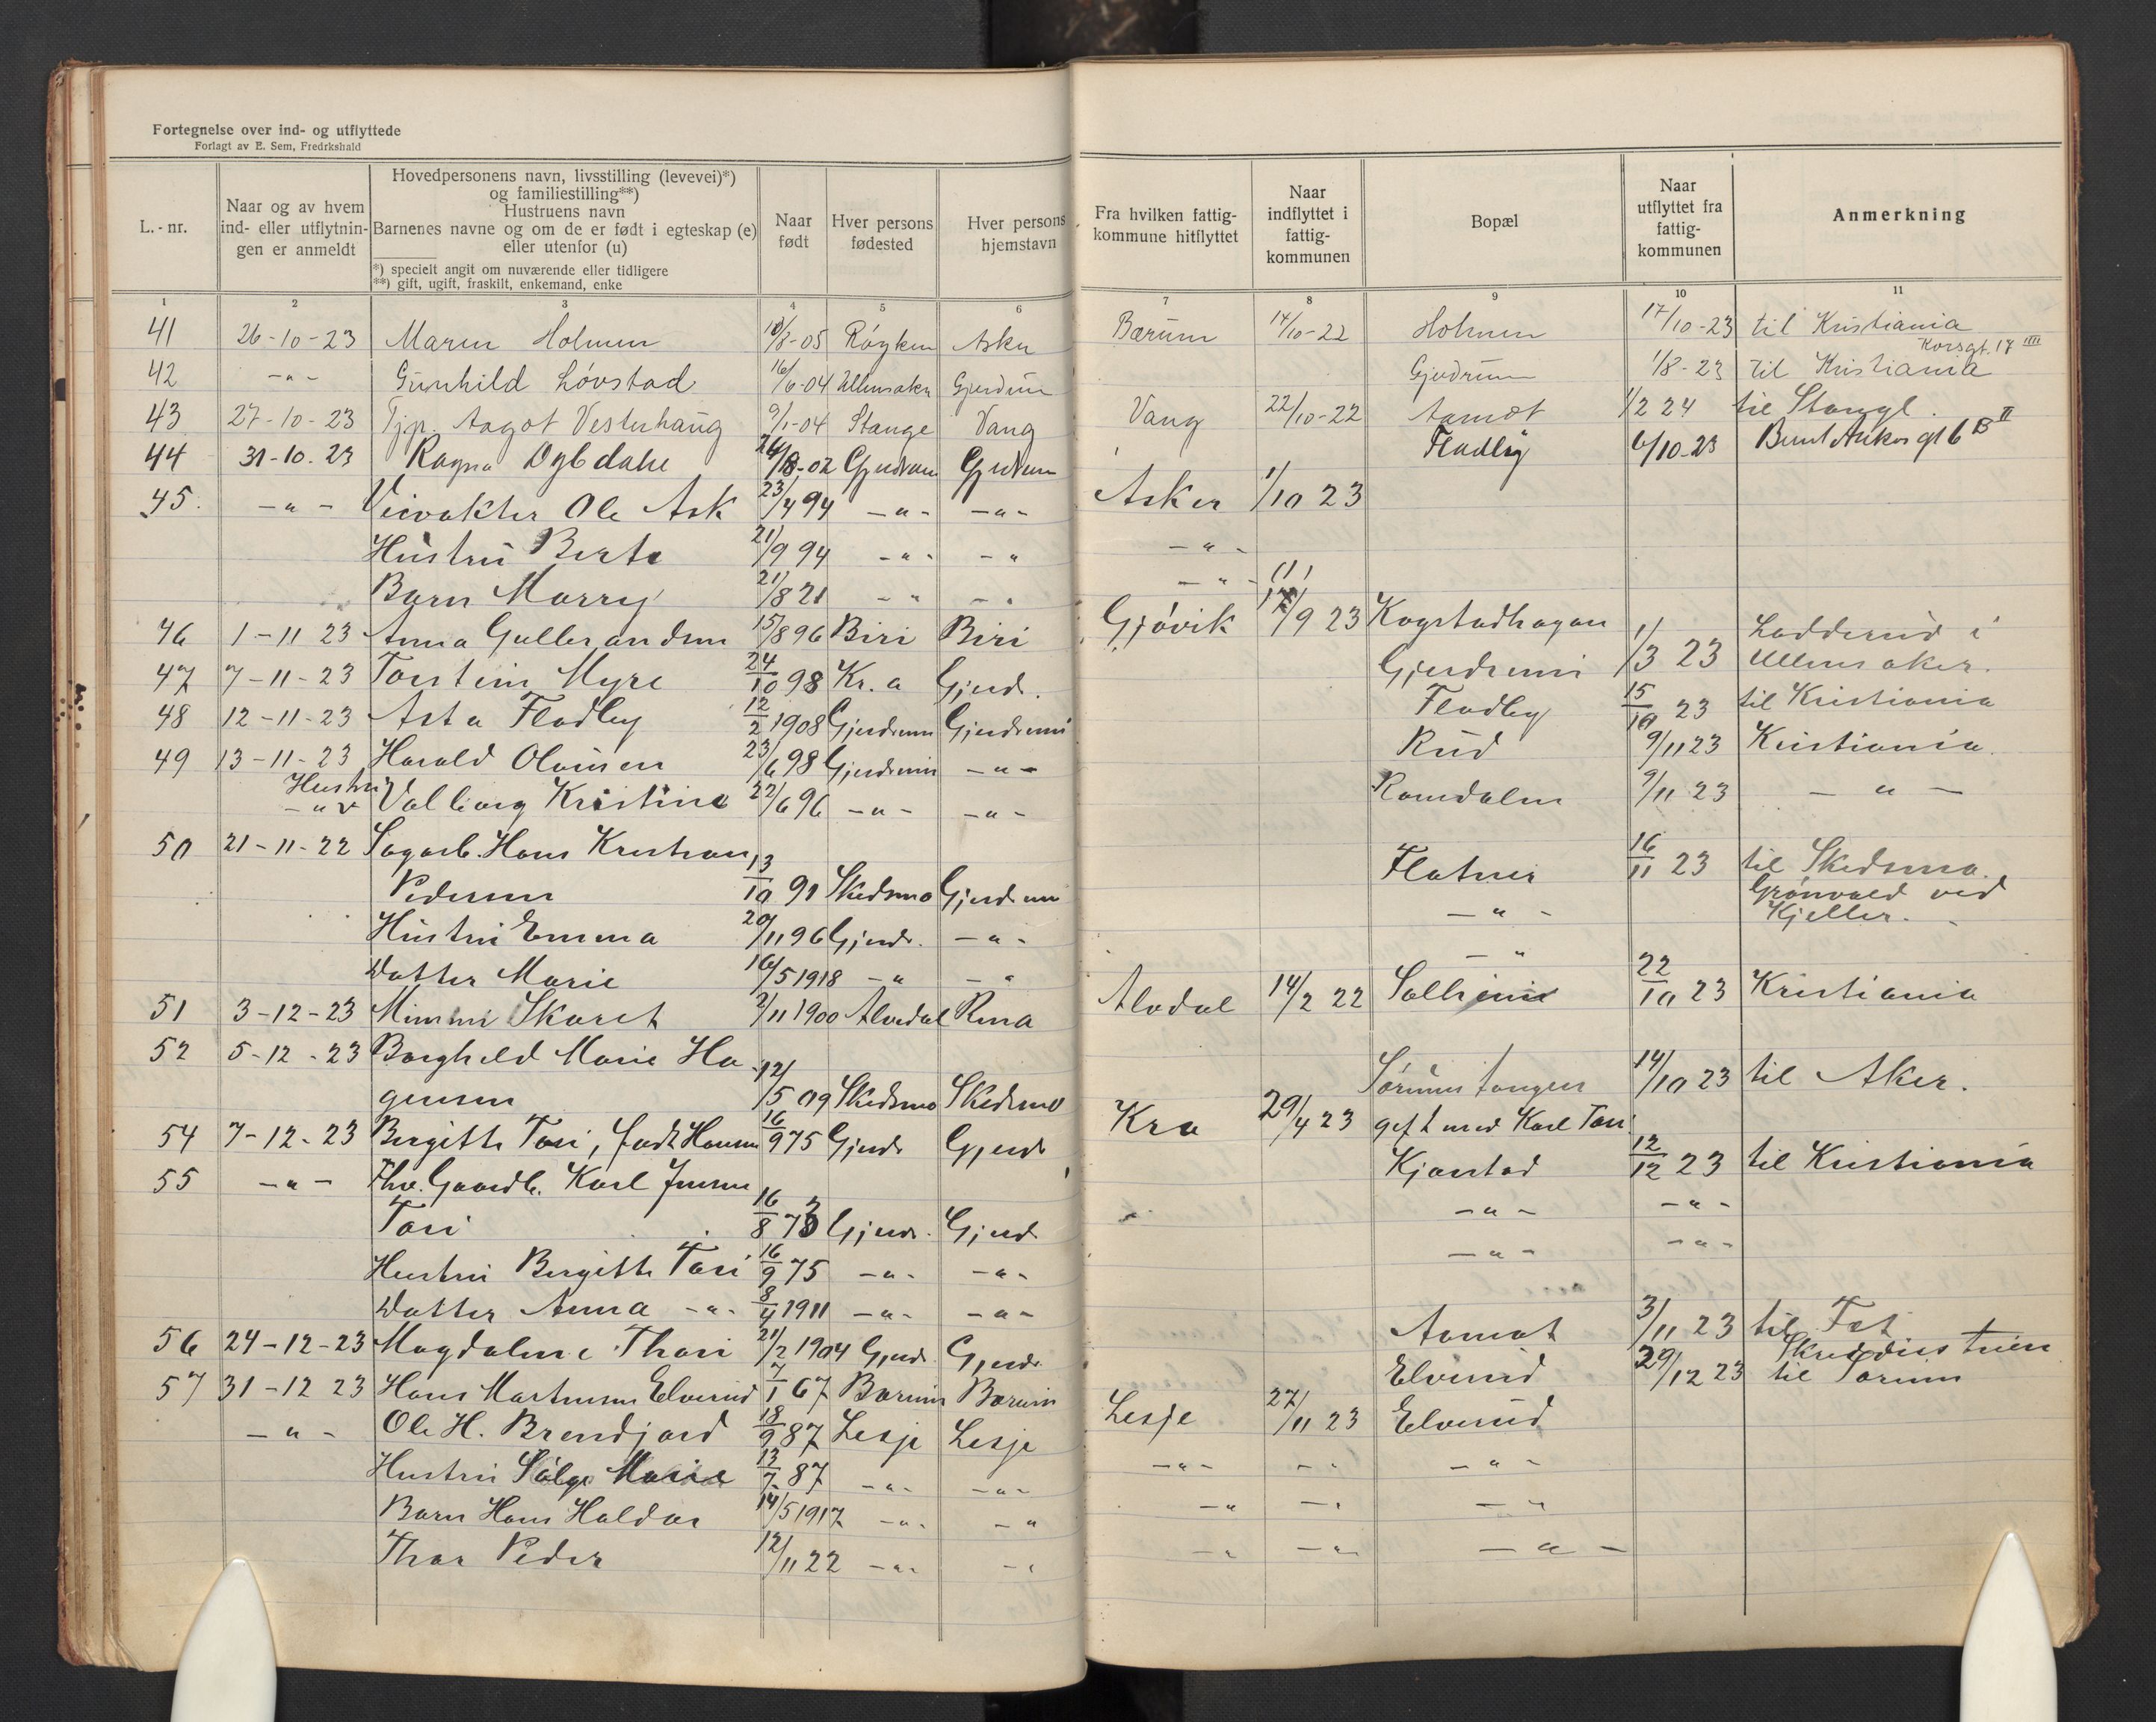 Fortegnelse over ind- og utflyttede
Forlagt av E. Sem, Fredrkshald
L.-nr. | Naar og av hvem ind- eller utflytningen er anmeldt | Hovedpersonens navn, livsstilling (levevei)*) og familiestilling**) Hustruens navn Barnenes navne og om de er født i egteskap (e) eller utenfor (u) *) specielt angit om nuværende eller tidligere **) gift, ugift, fraskilt, enkemand, enke | Naar født | Hver persons fødested | Hver persons hjemstavn | Fra hvilken fattigkommune hitflyttet | Naar indflyttet i fattigkommunen | Bopæl | Naar utflyttet fra fattigkommunen | Anmerkning
1 2 3 4 5 6 7 8 9 10 11
41 26-10-23 Maren Holmen 10/8-05 Røyken Asker Bærum 14/10-22 Holmen 17/10-23 til Kristiania
Korsgt. 17 IIII
42 -"- Gunhild Løvstad 16/6-04 Ullensaker Gjerdrum Gjerdrum 1/8-23 til Kristiania
43 27-10-23 Tjp. Aagot Vesterhaug 9/1-04 Stange Vang Vang 22/10-22 Aamot 1/2 24 til Stange.
44 31-10.23 Ragna Dybdahl Gjerdrum Gjerdrum Fladby 6/10-23 Bernt Ankers gt 6 B II
45. -"- Veivokter Ole Ask 23/4 94 -"- -"- Asker 1/10 23
Hustru Berte 21/9 94 -"- -" -"-
Barn Marry 21/8 21 -" -" -"-
46 1-11 23 Anna Gulbrandsen 15/8 96 Biri Biri Gjøvik 17/9 23 Kogstadhagan
47 7-11-23 Torstein Myre 24/10 98 Kr.a Gjerd. Gjerdrum 1/3 23 Ladderud i Ullensaker.
48 12-11-23 Asta Fladby 12/2 1908 Gjerdrum Gjerdrum Fladby 15/10 23 til Kristiania
49 13-11-23 Harald Olausen 23/6 98 Gjerdrum -"- Rud 9/11 23 Kristiania.
Hustru -"- Valborg Kristine 22/6 96 -"- -"- Romdalen 9/11 23 -"-
50 21-11-22 Sagarb. Hans Kristian
Pedersen 13/10 91 Skedsmo Gjerdrum Flatner 16/11 23 til Skedsmo.
Grønvold ved Kjeller.
Hustru Emma 20/11 96 Gjerdr. -"- -"-
Datter Marie 16/5 1918 -" -" -"
51 3-12-23 Mimmi Skaret 2/11 1900 Alvdal Rena Alvdal 14/2 22 Solheim 22/10 23 Kristiania
52 5-12-23 Borghild Marie Ha-
gensen 12/5 09 Skedsmo Skedsmo Sørumstangen 14/10 23 til Aker.
54 7-12-23 Birgitte Tori, født Hansen 16/9 75 Gjerdr Gjerdr Kra 29/4 23 gift med Karl Tori.
55 -"- Fhv. Gaardb. Karl Jensen Kjonstad 12/12 23 til Kristiania
Tori 16/8 73 Gjerdr. Gjerd -"- -"-
Hustru Birgitte Tori 16/9 75 -"- -"- -"- -"-
Datter Anna -"- 8/4 1911 -"- -"-
56 24-12-23 Magdalene Thori 21/2 1904 Gjerdr. Gjerdr. Aamot 3/11 23 til Fet
57 31-12 23 Hans Martinsen Elverud 7/1 67 Bærum Bærum Elverud 29/12 23 til Sørum
-"- Ole H. Brendjord 18/9 87 Lesje Lesje Lesje 27/11 23 Elverud
Hustru Marie 13/7 87 -"- -"- -"- -"- -"-
Barn Hans Haldor 14/5 1917 -"- -" -" -" -"
Thor Peder 12/11 22 -"- -" -" -"- -"-